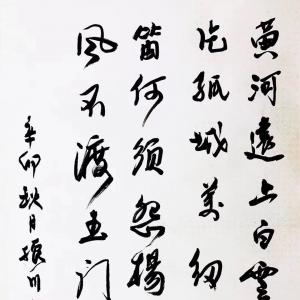 黄河遠上白雲
片孤城萬仞
笛何須怨楊
風不渡玉門
辛卯秋月